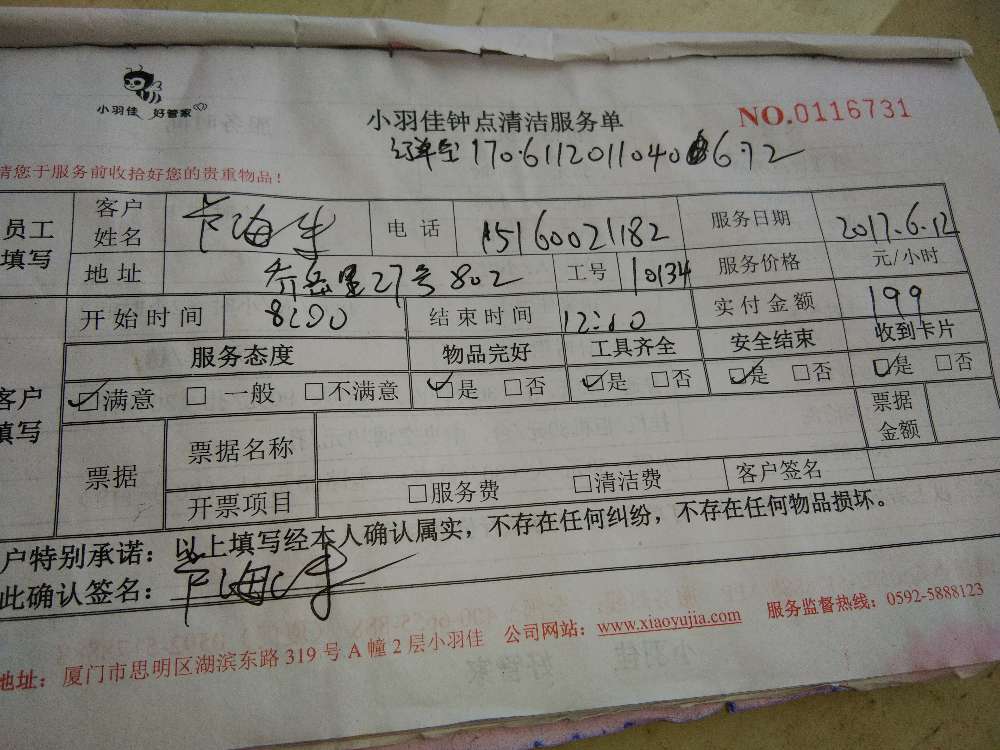 小羽佳 好管家
小羽佳钟点清洁服务单
NO.0116731
请您于服务前收拾好您的贵重物品！
员工填写
客户姓名
电话 15160021182
服务日期 2017.6.12
地址 27号802
工号 10134
服务价格 元/小时
开始时间 8:00
结束时间 12:00
实付金额 199
客户填写
服务态度 物品完好 工具齐全 安全结束 收到卡片
☑满意 □一般 □不满意 ☑是 □否 ☑是 □否 ☑是 □否 ☑是 □否
票据
票据名称
票据金额
开票项目 □服务费 □清洁费 客户签名
户特别承诺：以上填写经本人确认属实，不存在任何纠纷，不存在任何物品损坏。
此确认签名：
地址：厦门市思明区湖滨东路 319 号 A 幢 2 层小羽佳 公司网站：www.xiaoyujia.com 服务监督热线：0592-5888123